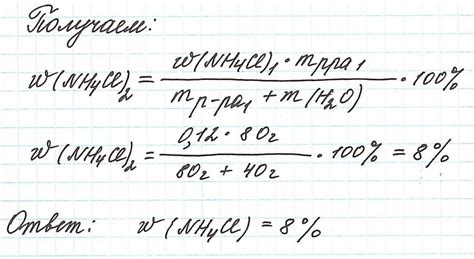 Получаем:
w(NH₄Cl)₂ = w(NH₄Cl)₁ · mр-ра₁ / mр-ра₁ + m(H₂O) · 100%
w(NH₄Cl)₂ = 0,12 · 80г / 80г + 40г · 100% = 8%
Ответ: w(NH₄Cl) = 8%